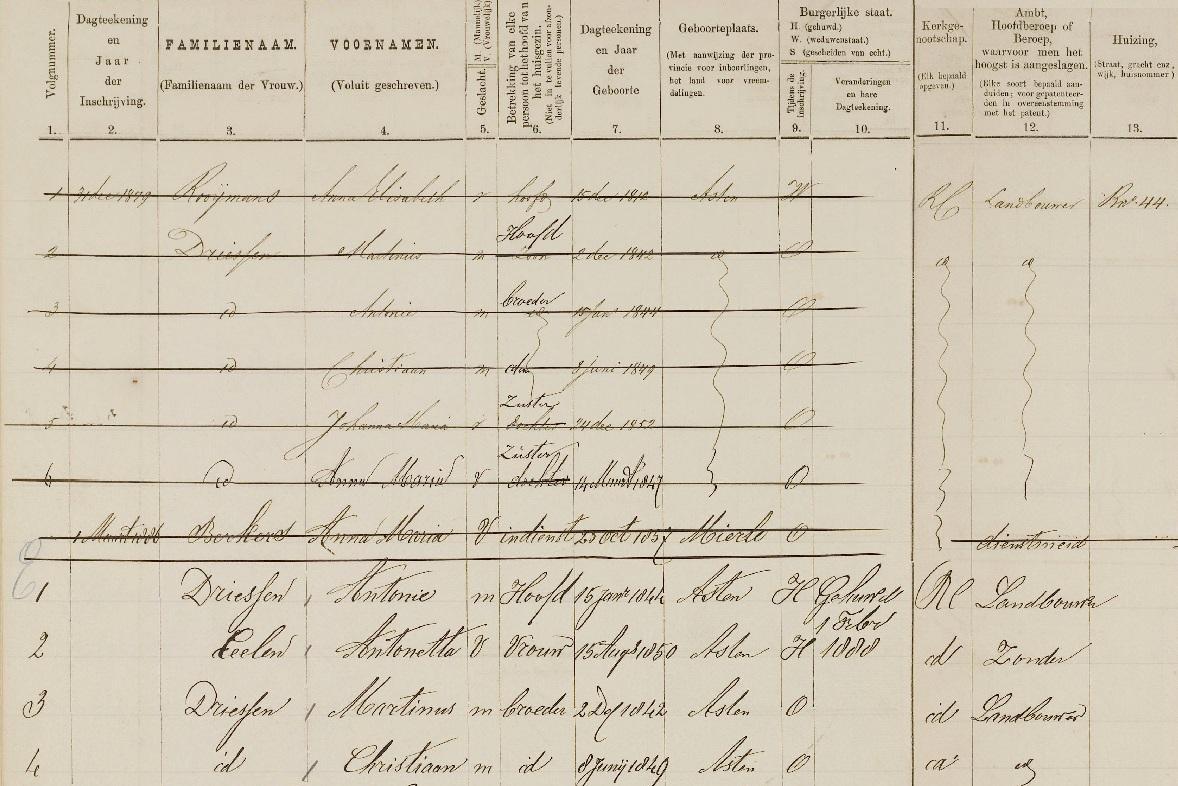 Volgnummer.
1.
Dagteekening
en
Jaar
der
Inschrijving.
2.
FAMILIENAAM.
(Familienaam der Vrouw.)
3.
VOORNAMEN.
(Voluit geschreven.)
4.
Geslacht. M. (Mannelijk.) V. (Vrouwelijk)
5.
Betrekking van elke
persoon tot het hoofd van
het huisgezin.
(Niet in te vullen voor afzon-
derlijk levende personen.)
6.
Dagteekening
en Jaar
der
Geboorte
7.
Geboorteplaats.
(Met aanwijzing der pro-
vincie voor inboorlingen,
het land voor vreem-
delingen.
8.
Burgerlijke staat.
H. (gehuwd.)
W. (weduwenstaat.)
S (gescheiden van echt.)
Tijdens de
inschrijving.
9.
Veranderingen
en hare
Dagteekening.
10.
Kerkge-
nootschap.
(Elk bepaald
opgeven.)
11.
Ambt,
Hoofdberoep of
Beroep,
waarvoor men het
hoogst is aangeslagen.
(Elke soort bepaald aan-
duiden; voor gepatenteer-
den in overeenstemming
met het patent.)
12.
Huizing,
(Straat, gracht enz,
wijk, huisnommer)
13.
1 31 dec 1879 Rooijmans Anna Elisabeth v hoofd 15 dec 1812 Asten W RC Landbouwer 44.
Hoofd
2 Driessen Martinus m Zoon 2 dec 1842 id O id id
broeder
3 id Antonie m id 15 jan 1844 O
4 id Christiaan m 8 juni 1849 O
Zuster
5 id Johanna Maria v dochter 24 dec 1852 O
Zuster
6 id Anna Maria v dochter 14 Maart 1847 O
1 Maart 1886 Berkers Anna Maria V in dienst 25 Oct 1857 Mierlo O dienstmeid
1 Driessen Antonie m Hoofd 15 janr 1844 Asten H Gehuwd RC Landbouwer
1 Febr
2 Ceelen Antonetta V Vrouw 15 Augs 1850 Asten H 1888 id Zonder
3 Driessen Martinus m broeder 2 Dec 1842 Asten O id Landbouwer
4 id Christiaan m id 8 Junij 1849 Asten O id id